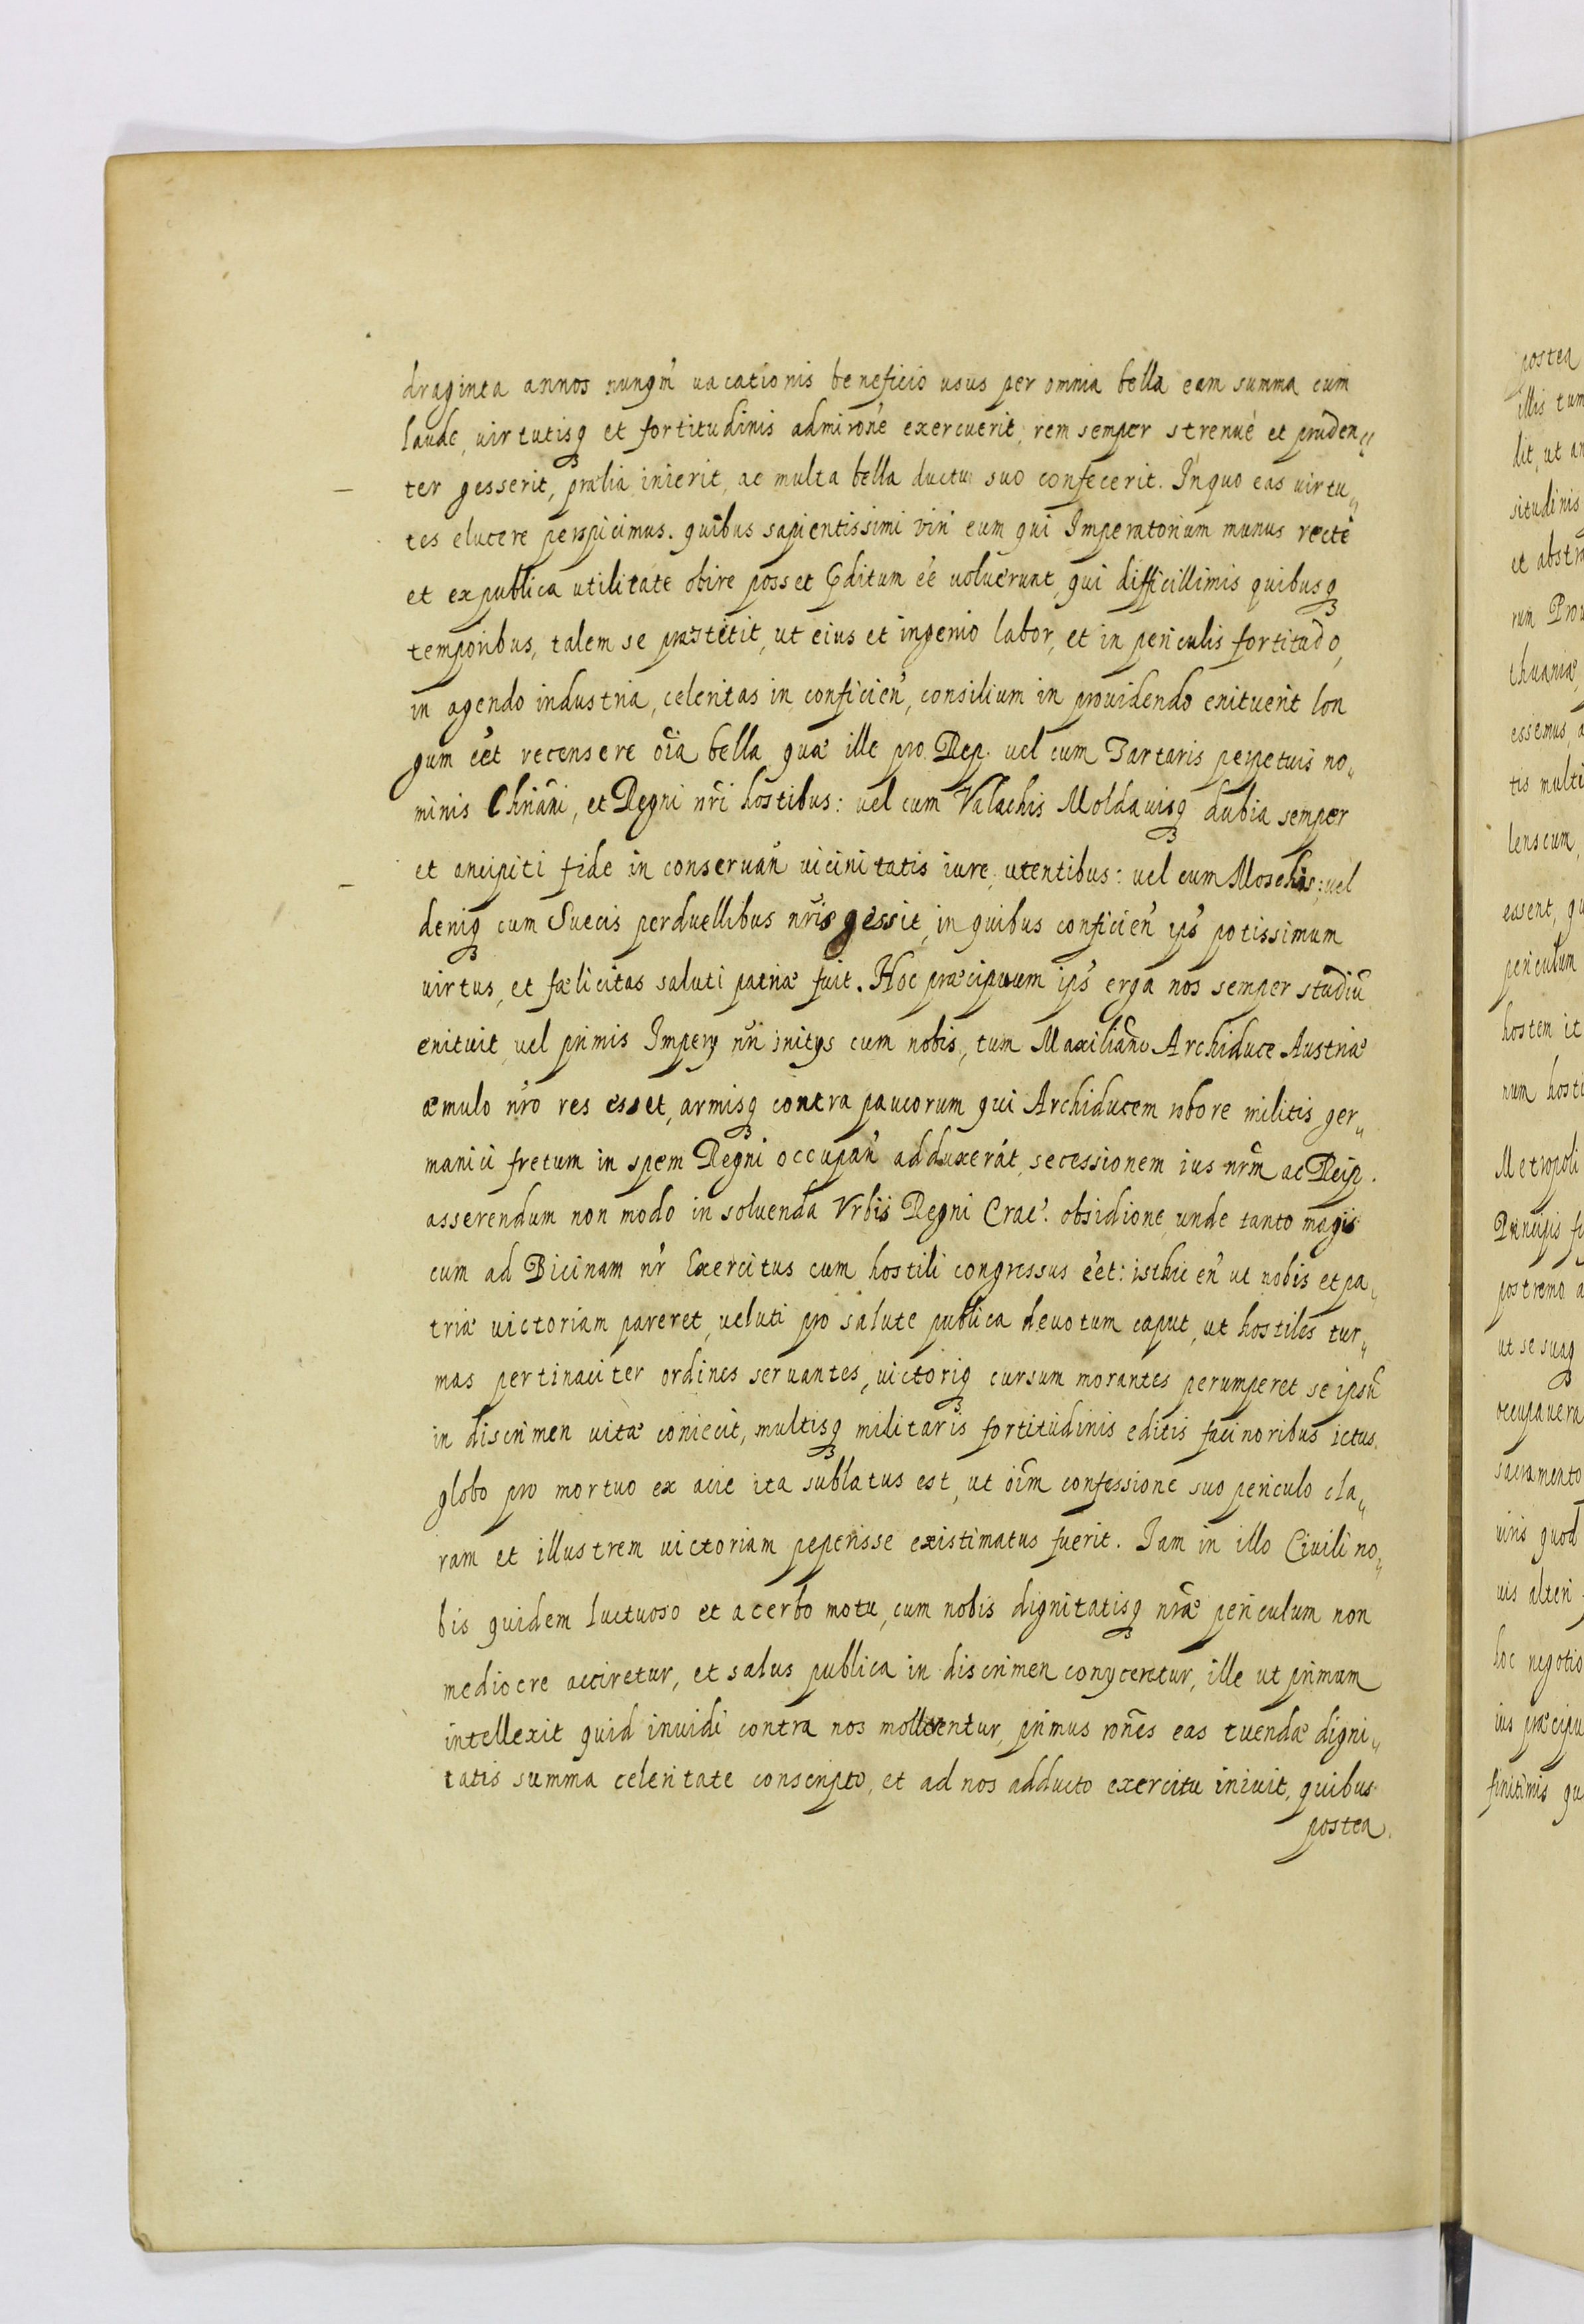 draginta annos nunqm̃ uacationis beneficio usus per omnia bella eam summa cum
laude, uirtutisq3 et fortitudinis admirone͂ exercuerit, rem semper strenué et pruden„
ter gesserit, prælia inierit, ac multa bella ductu suo confecerit. In quo eas uirtu„
tes elucere perspicimus. quibus sapientissimi viri eum qui Imperatorium munus recte
et ex publica utilitate obire posset p̃ditum e͂e uoluerunt, qui difficillimis quibusq3
temporibus, talem se præstitit, ut eius et ingenio labor, et in periculis fortitudo,
in agendo industria, celeritas in conficien̄, consilium in prouidendo enituerit lon
gum e͂et recensere o͂ia bella quæ ille pro Rep. uel cum Tartaris perpetuis no„
minis Chr̃iani, et Regni nr̃i hostibus: uel cum Valachis Moldauisq3 dubia semper
et ancipiti fide in conseruan̄ uicinitatis iure utentibus: uel cum Moschis: uel
deniq3 cum Suecis perduellibus nr̃is gessit, in quibus conficien̄ ips̄ potissimum
virtus, et fælicitas saluti patriæ fuit. Hoc præcipuum ips̄ erga nos semper studiũ
enituit uel primis Impery nr̃i initys cum nobis, tum Maxiliãno Archiduce Austriæ
æmulo nr̃o res esset, armisq3 contra paucorum qui Archiducem robore militis ger„
manici fretum in spem Regni occupan̄ adduxerát, secessionem ius nr̃m ac Reip.
asserendum non modo in soluenda Vrbis Regni Crac̄. obsidione unde tanto magis
cum ad Bicinam nr̄ Exercitus cum hostili congressus e͂et: isthic en̄ ut nobis et pa„
triæ uictoriam pareret, ueluti pro salute publica deuotum caput, ut hostiles tur„
mas pertinaciter ordines seruantes, uictoriq3 cursum morantes perumperet se ipsũ
in discrimen uitæ coniecit, multisq3 militaris fortitudinis editis facinoribus ictus
globo pro mortuo ex acie ita sublatus est, ut oĩm confessione suo periculo cla„
ram et illustrem uictoriam peperisse existimatus fuerit. Iam in illo Ciuili no„
bis quidem luctuoso et acerbo motu, cum nobis dignitatisq3 nr̃æ periculum non
mediocre acciretur, et salus publica in discrimen conyceretur, ille ut primum
intellexit quid inuidi contra nos molirentur, primus rones̃ eas tuendæ digni„
tatis summa celeritate conscripto, et ad nos adducto exercitu iniuit, quibus
postea
postea
illis tum
dit, ut an
situdinis
et abstra
rum Prou
thuaniæ
essemus, a
tis multi
lenscum,
essent, qu
periculum
hostem it
rum hosti
Metropoli
Principis fi
postremo a
ut se suaq3
occupauera
sacramento
uiris quod
uis alteri
hoc negotio
ius præcipu
finitimis qu